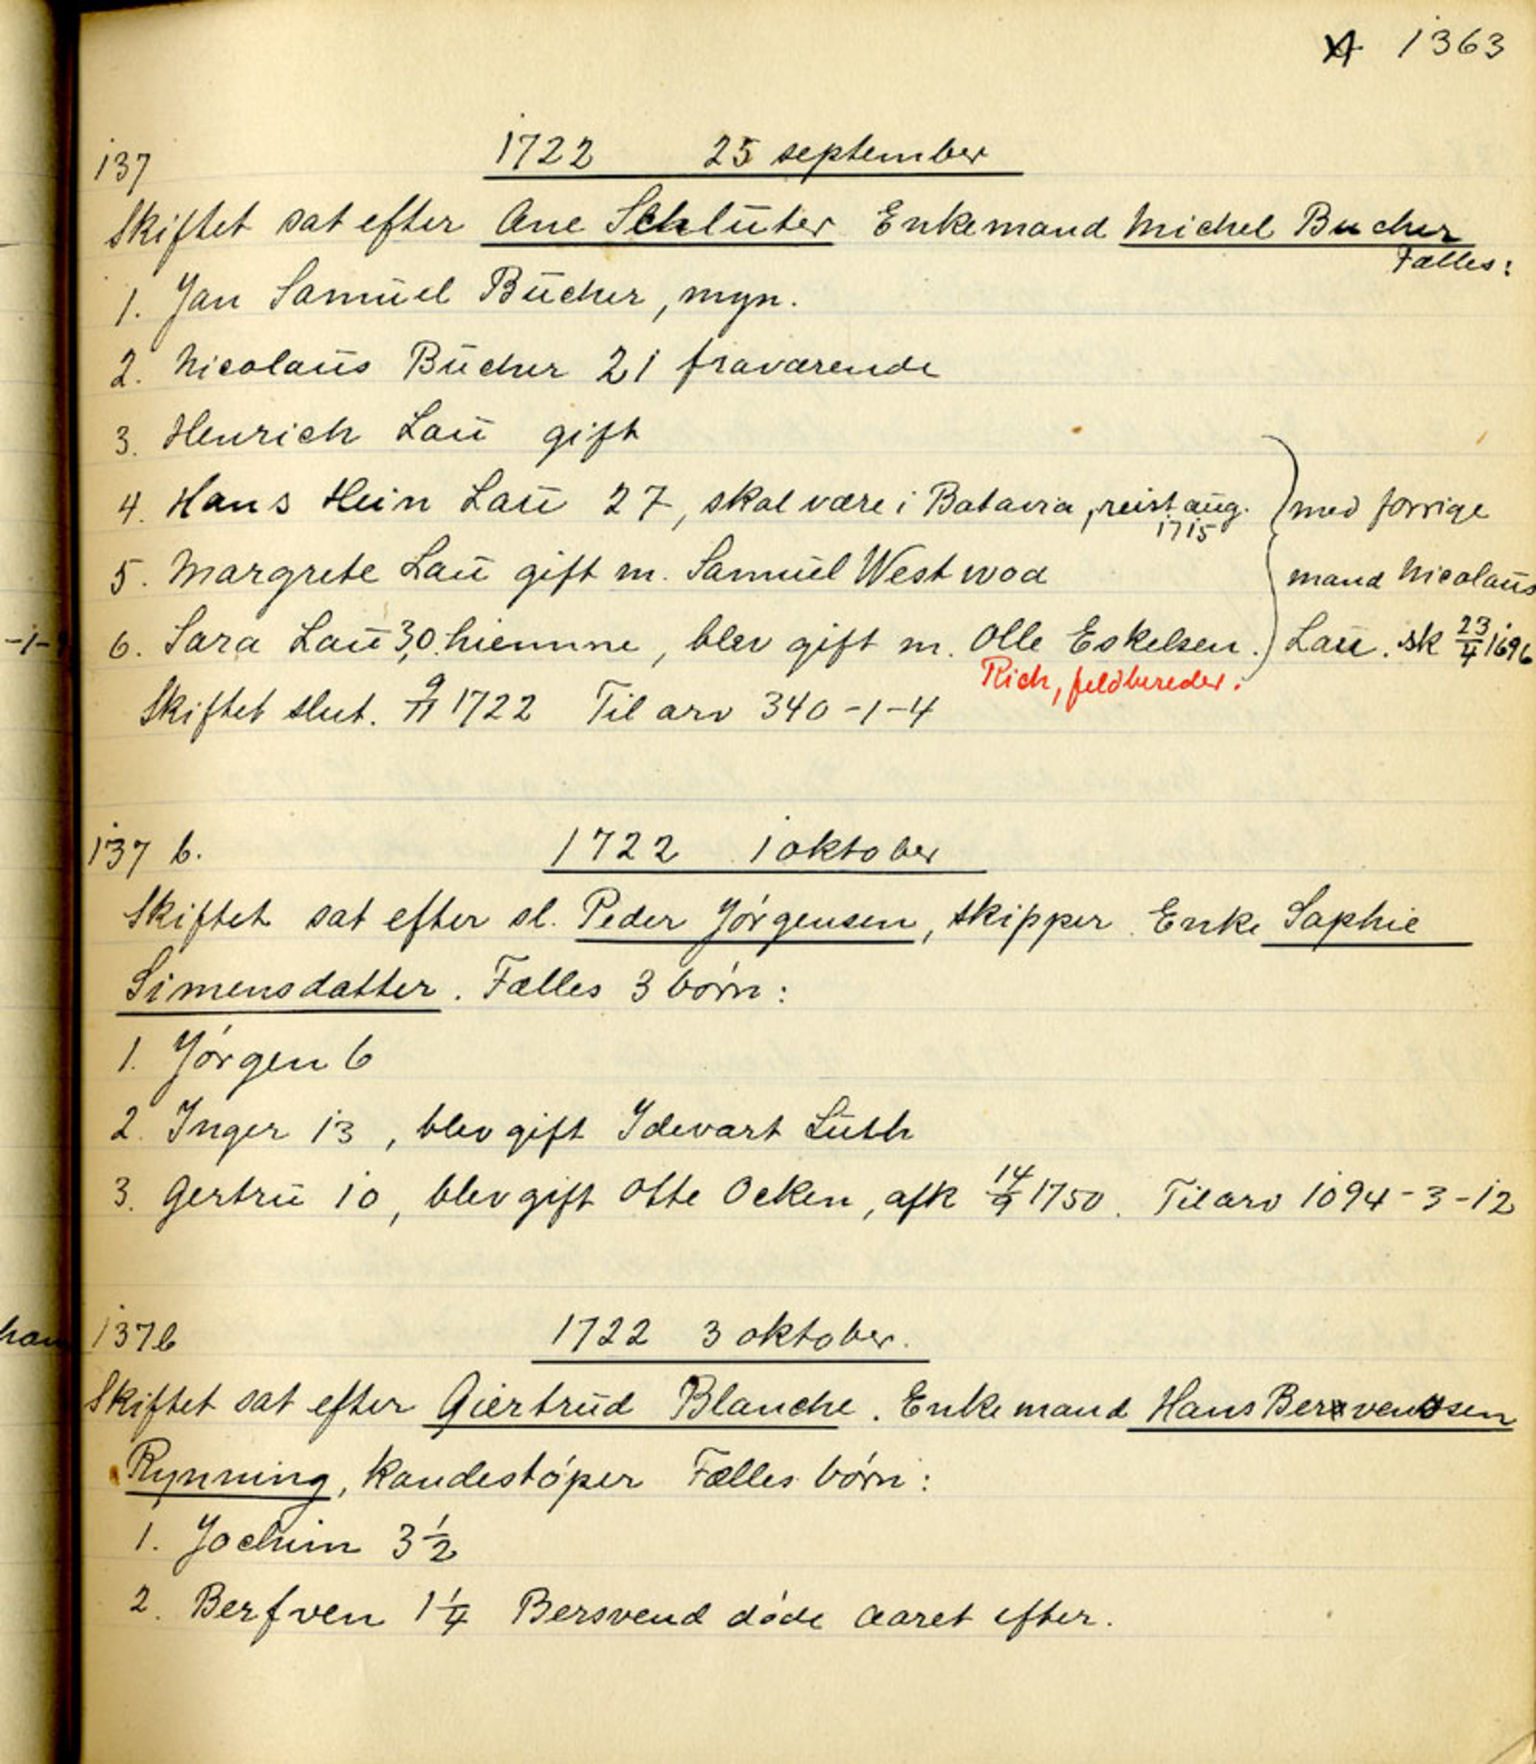 1363
137 1722 25 september
Skiftet sat efter Ane Schlüter Enkemand Michel Bucher
Fælles:
1. Jan Samuel Bücher, myn.
2. Nicolaüs Bücher 21 fraværende
3. Henrich Laü gift
4. Hans Hein Laü 27, skal være i Batavia, reist aüg. 1715 } med forrige
5. Margrete Laü gift m. Samüel Westwod mand Nicolaüs
-1- 6. Sara Laü 30 hiemme, blev gift m. Olle Eskelsen. Laü. sk 23/4 1696
Rich, feldbereder.
Skiftet slut. 9/11 1722 Til arv 340-1-4
137 b. 1722 1 oktober
Skiftet sat efter sl. Peder Jórgensen, skipper. Enke Saphie
Simensdatter. Fælles 3 bórn:
1. Jórgen 6
2. Inger 13, blev gift Idevart Lüth
3. Gertrü 10, blev gift Otte Ocken, afk 14/9 1750. Til arv 1094-3-12
137b 1722 3 oktober.
Skiftet sat efter Giertrüd Blanche. Enkemand Hans Bersvendsen
Rynning, Kandestóper Fælles bórn:
1. Jochim 3 1/2
2. Berfven 1 1/4 Bersvend dóde aaret efter.